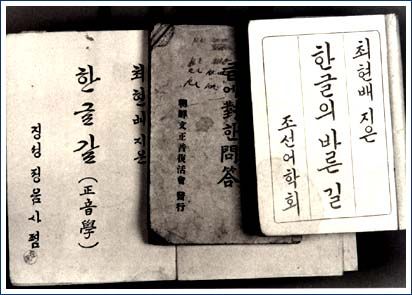 최현배 지은
한글갈 (正音學)
경성 정음사
에對한問答
朝鮮文正音復活會 發行
최현배 지은
한글의 바른 길
조선어학회